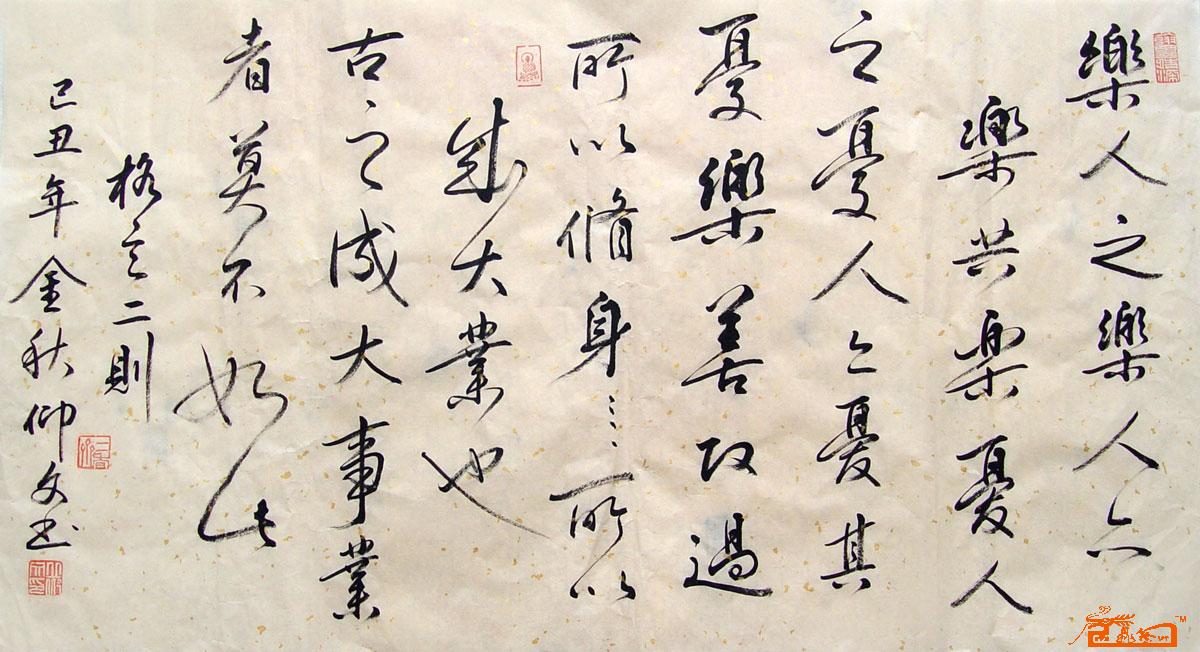 樂人之樂人亦
樂其樂憂人
之憂人亦憂其
憂樂善改過
所以脩身……所以
成大業也
古之成大事業
者莫不如此
格言二則
己丑年金秋仰文书